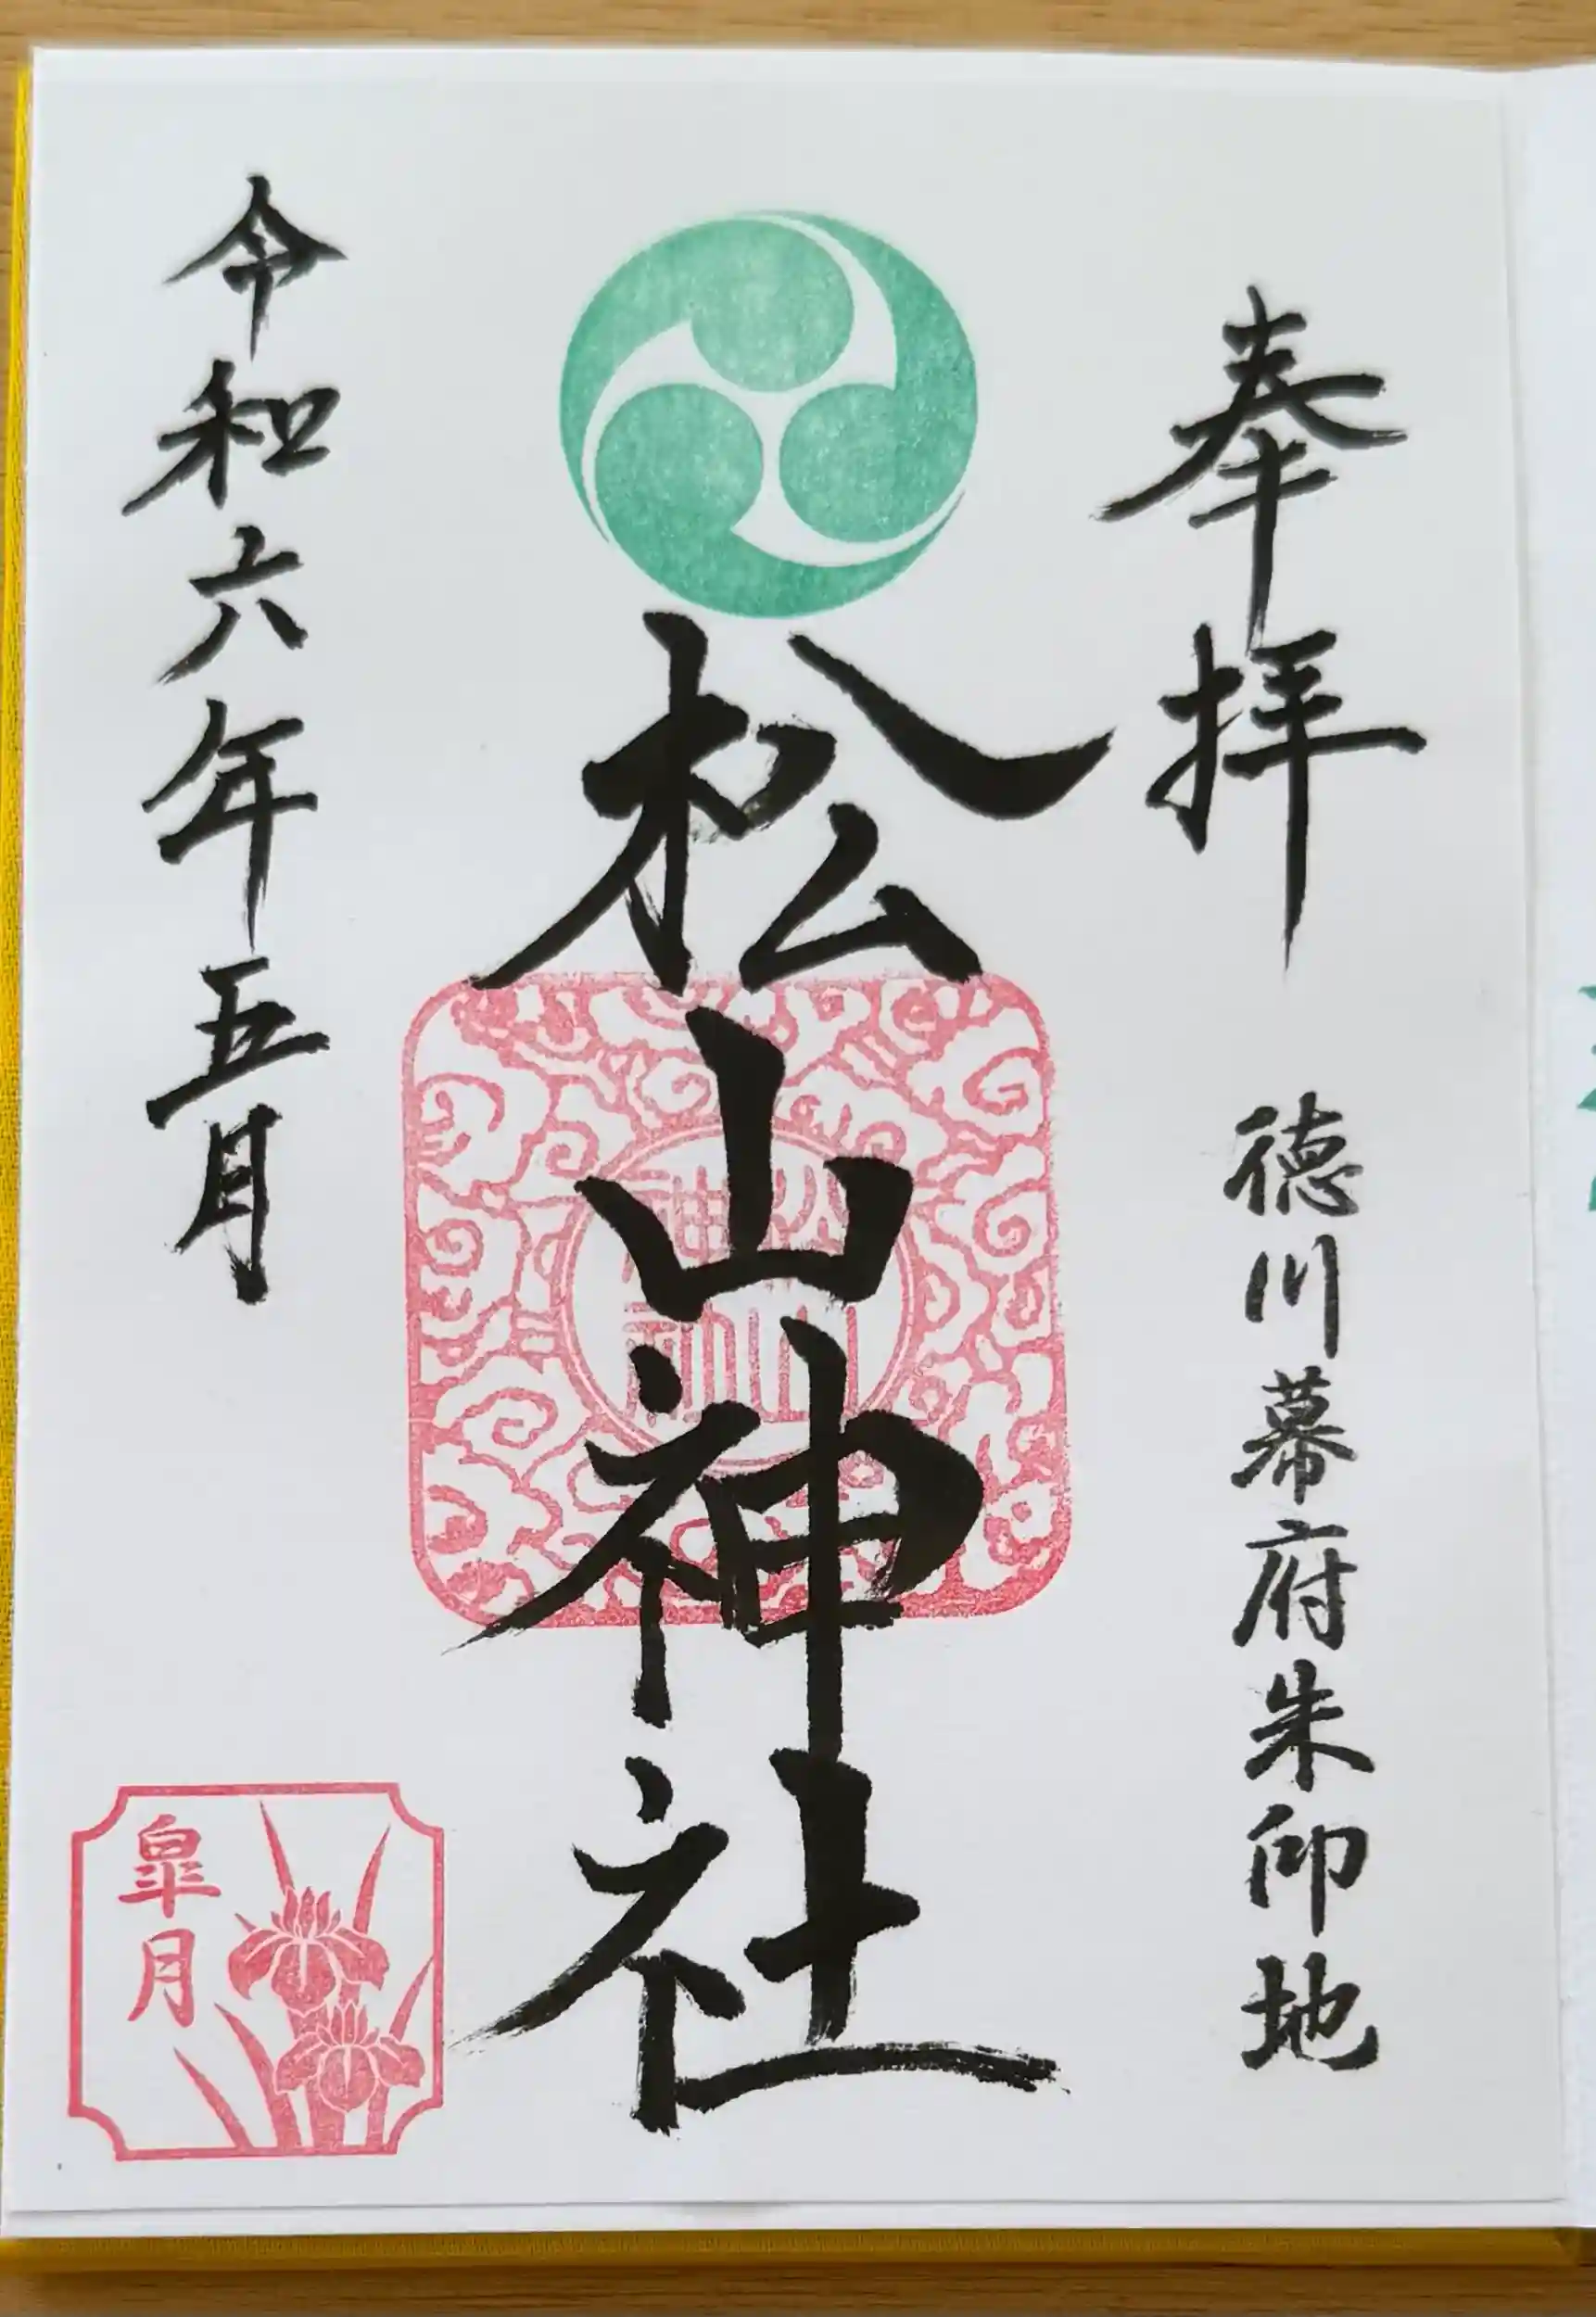 奉拝
徳川幕府朱印地
松山神社
令和六年五月
皐月